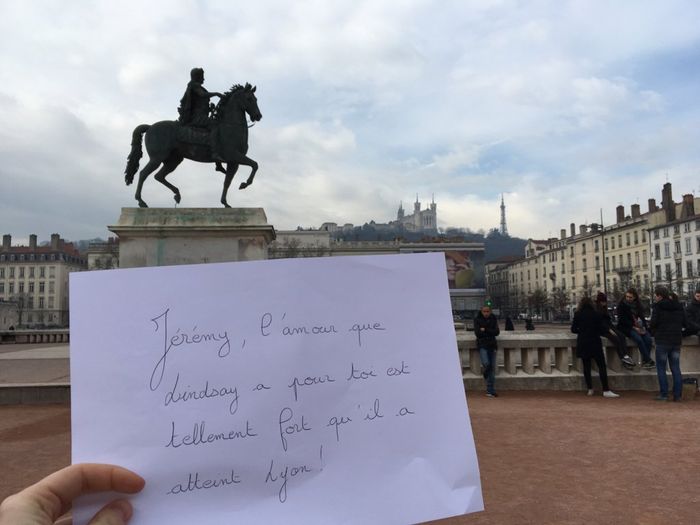 Jérémy, l'amour que
Lindsay a pour toi est
tellement fort qu'il a
atteint Lyon !